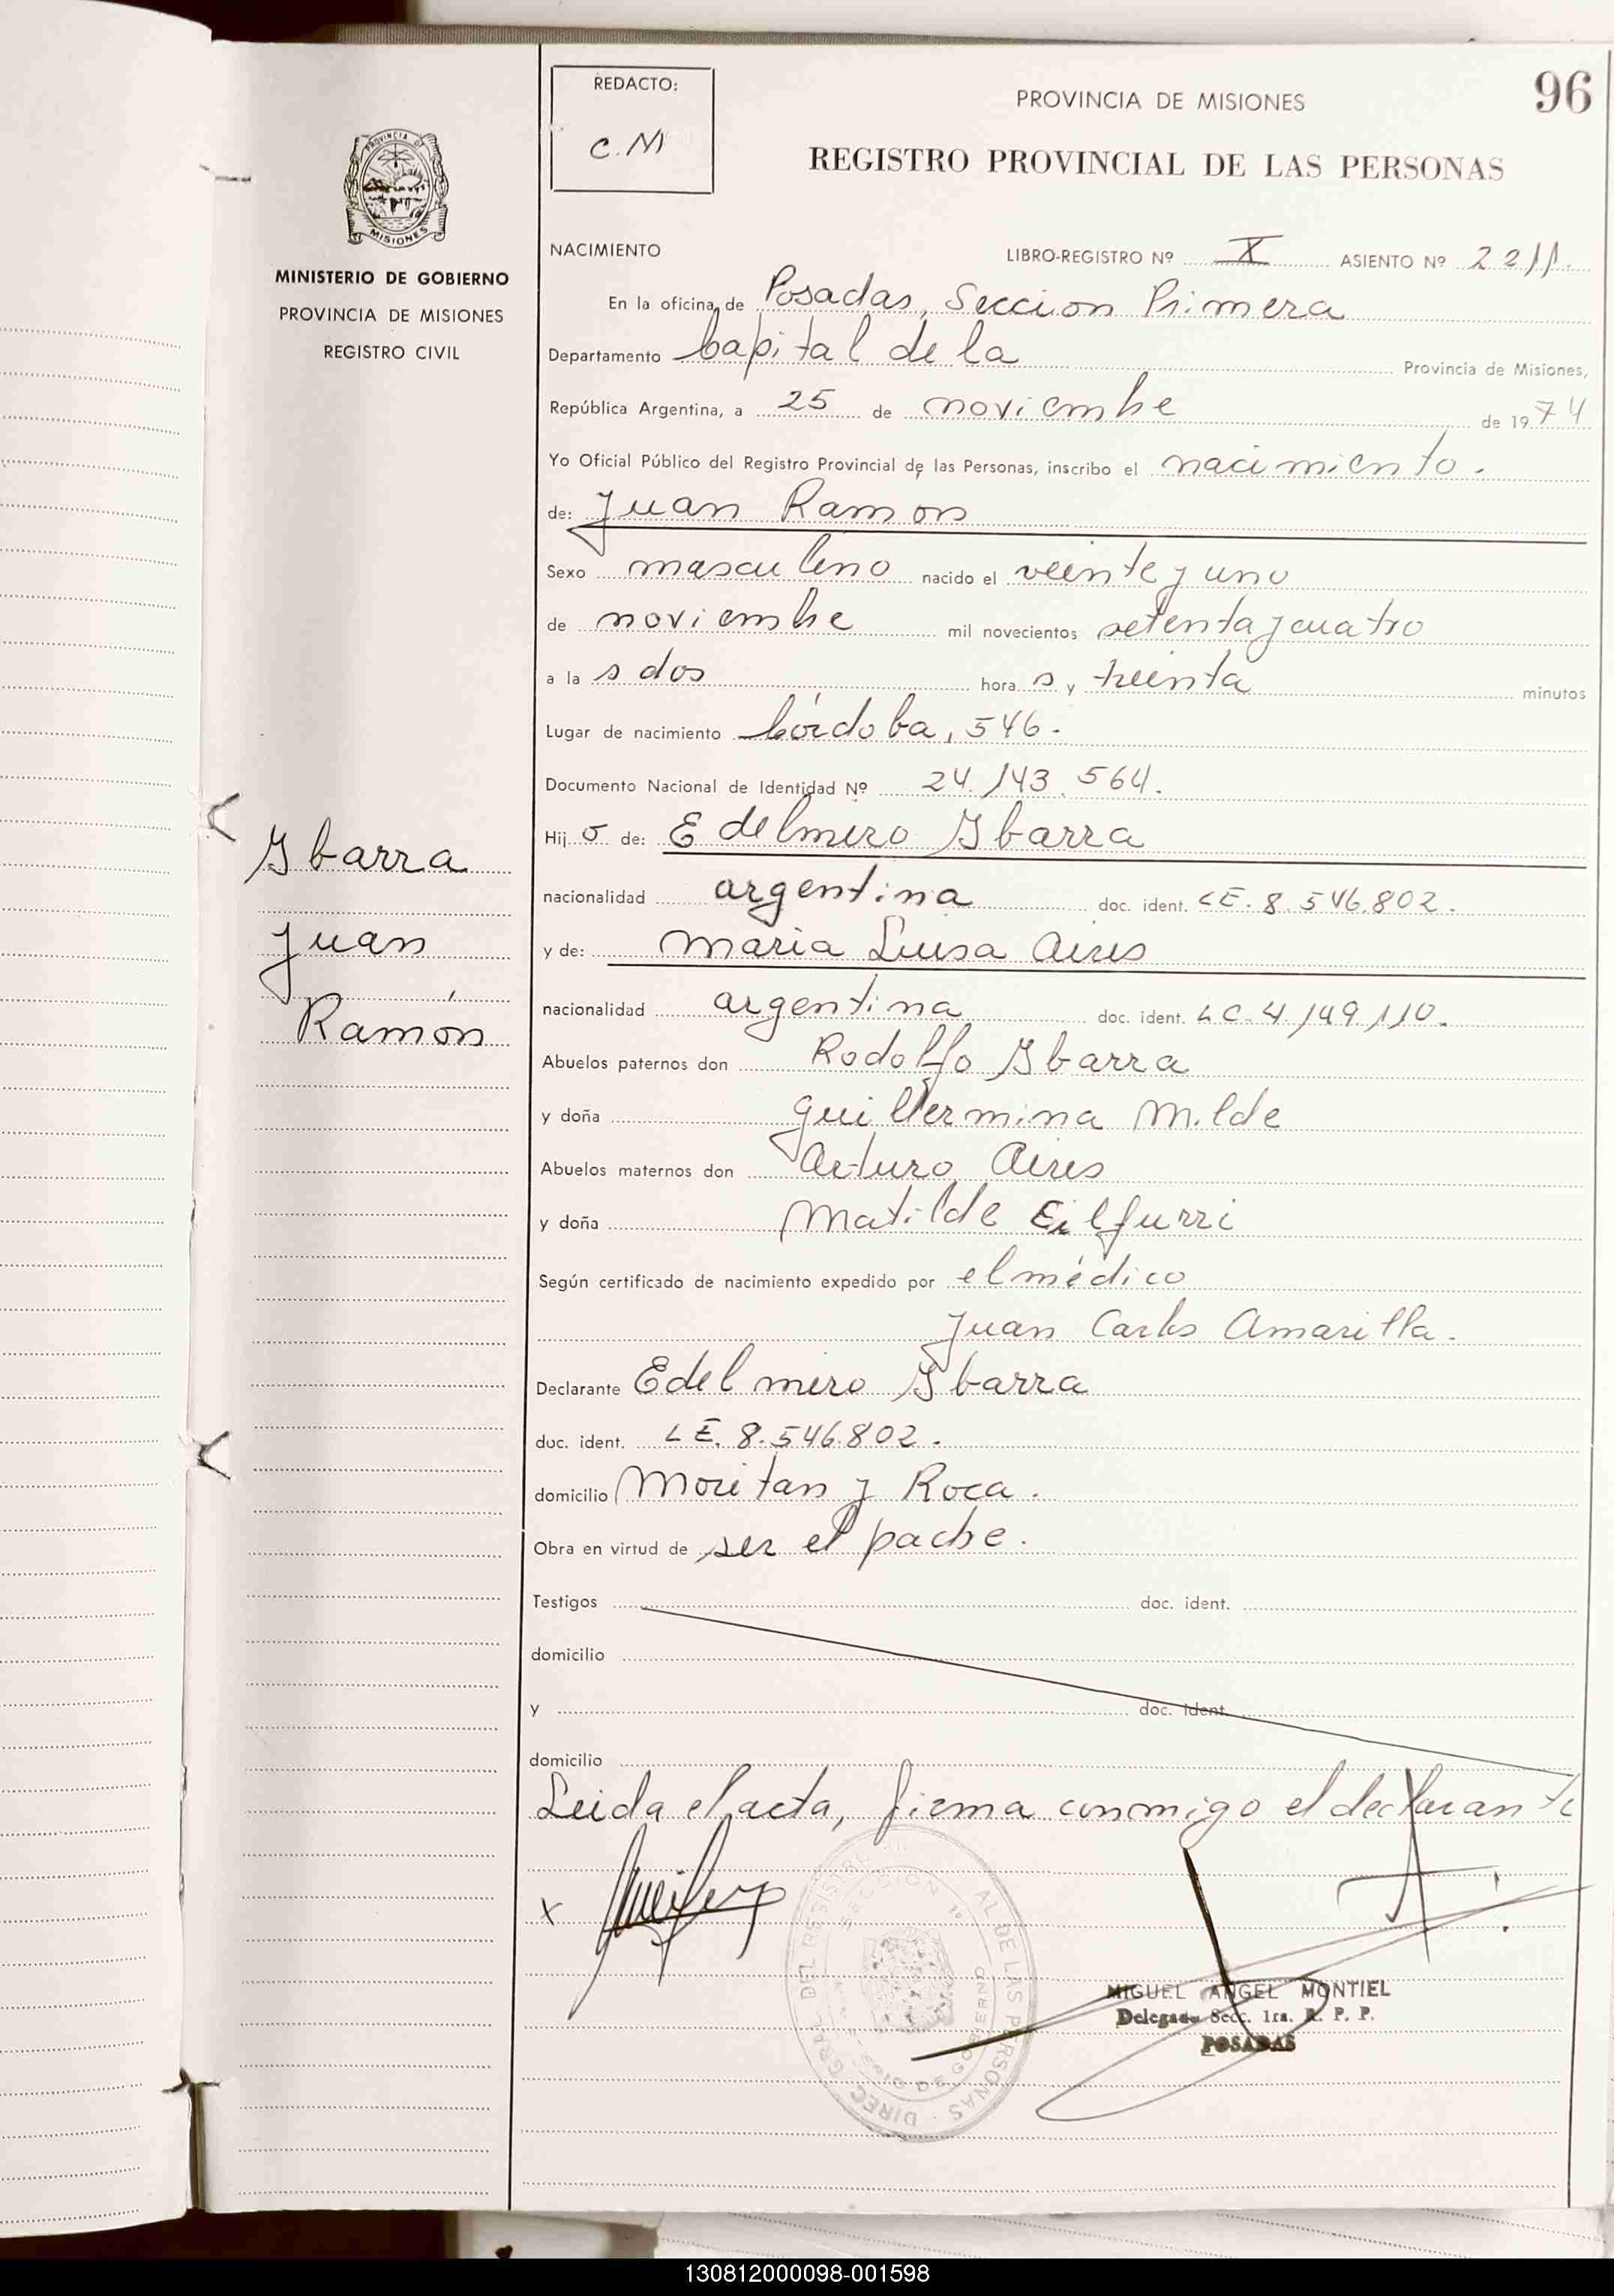 96
REDACTO:
C.M
PROVINCIA DE MISIONES
REGISTRO PROVINCIAL DE LAS PERSONAS
PROVINCIA DE
MISIONES
MINISTERIO DE GOBIERNO
PROVINCIA DE MISIONES
REGISTRO CIVIL
Ibarra
Juan
Ramón
NACIMIENTO LIBRO-REGISTRO Nº X ASIENTO Nº 2211.
En la oficina de Posadas, Seccion Primera
Departamento Capital de la Provincia de Misiones,
República Argentina, a 25 de noviembre de 1974
Yo Oficial Público del Registro Provincial de las Personas, inscribo el nacimiento.
de: Juan Ramon
Sexo masculino nacido el veinte y uno
de noviembre mil novecientos setenta y cuatro
a la s dos hora s y treinta minutos
Lugar de nacimiento Córdoba, 546.
Documento Nacional de Identidad Nº 24.143.564.
Hij o de: Edelmiro Ibarra
nacionalidad argentina doc. ident. LE. 8.546.802.
y de: Maria Luisa Aires
nacionalidad argentina doc. ident. LC. 4.149.110.
Abuelos paternos don Rodolfo Ibarra
y doña Guillermina Milde
Abuelos maternos don Arturo Aires
y doña Matilde
Según certificado de nacimiento expedido por el médico
Juan Carlos Amarilla.
Declarante Edelmiro Ibarra
doc. ident. LE. 8.546.802.
domicilio Moritan y Roca.
Obra en virtud de ser el padre.
Testigos doc. ident.
domicilio
y doc. ident.
domicilio
Leida el acta, firma conmigo el declarante
x
DIREC. GRAL. DEL REGISTRO AL DE LAS PERSONAS
SECCION 1º
DE GOBIERNO
MIGUEL ANGEL MONTIEL
Delegado Secc. 1ra. R. P. P.
POSADAS
130812000098-001598